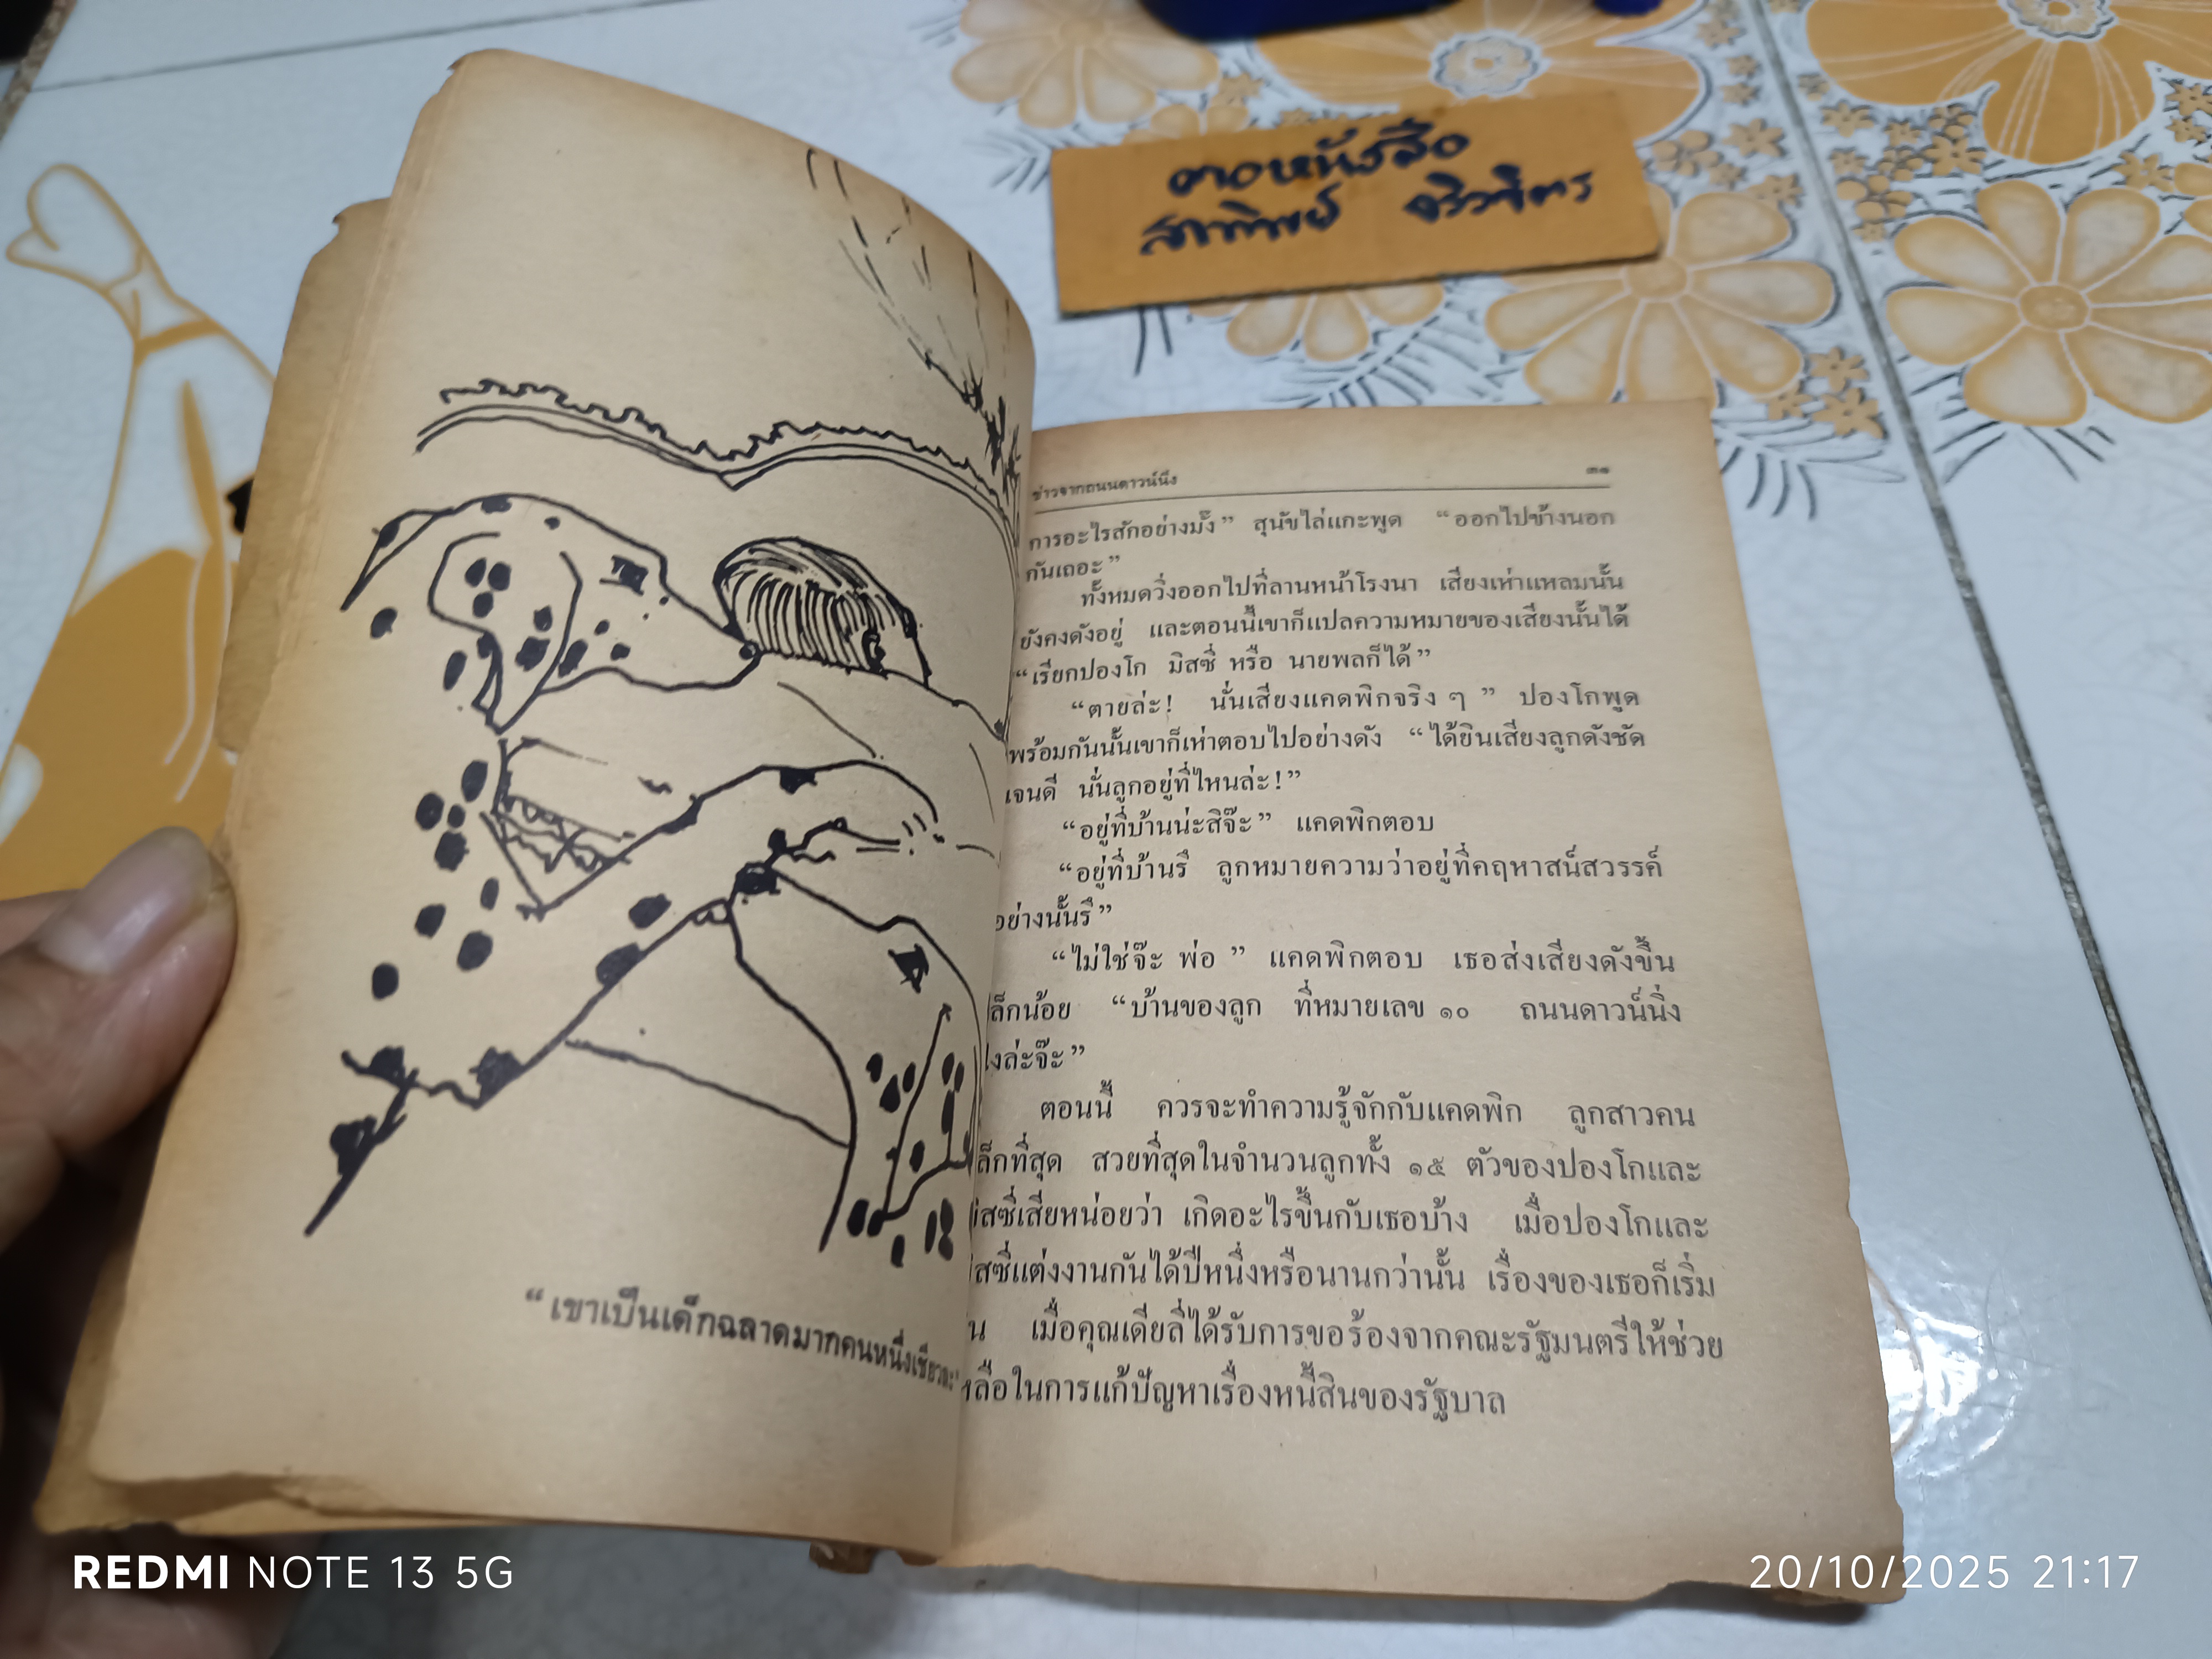 ตอหนังสือ
สภาทิพย์
"เขาเป็นเด็กฉลาดมากคนหนึ่งเชียวละ"
ข่าวจากถนนดาวน์นิ่ง ๓๑
การอะไรสักอย่างมั้ง" สุนัขไล่แกะพูด "ออกไปข้างนอก
กันเถอะ"
ทั้งหมดวิ่งออกไปที่ลานหน้าโรงนา เสียงเห่าแหลมนั้น
ยังคงดังอยู่ และตอนนี้เขาก็แปลความหมายของเสียงนั้นได้
"เรียกปองโก มิสซี่ หรือ นายพลก็ได้"
"ตายล่ะ! นั่นเสียงแคดพิกจริง ๆ" ปองโกพูด
พร้อมกันนั้นเขาก็เห่าตอบไปอย่างดัง "ได้ยินเสียงลูกดังชัด
เจนดี นั่นลูกอยู่ที่ไหนล่ะ!"
"อยู่ที่บ้านน่ะสิจ๊ะ" แคดพิกตอบ
"อยู่ที่บ้านรึ ลูกหมายความว่าอยู่ที่คฤหาสน์สวรรค์
อย่างนั้นรึ"
"ไม่ใช่จ๊ะ พ่อ" แคดพิกตอบ เธอส่งเสียงดังขึ้น
เล็กน้อย "บ้านของลูก ที่หมายเลข ๑๐ ถนนดาวน์นิ่ง
ไงล่ะจ๊ะ"
ตอนนี้ ควรจะทำความรู้จักกับแคดพิก ลูกสาวคน
เล็กที่สุด สวยที่สุดในจำนวนลูกทั้ง ๑๕ ตัวของปองโกและ
มิสซี่เสียหน่อยว่า เกิดอะไรขึ้นกับเธอบ้าง เมื่อปองโกและ
มิสซี่แต่งงานกันได้ปีหนึ่งหรือนานกว่านั้น เรื่องของเธอก็เริ่ม
น เมื่อคุณเดียลี่ได้รับการขอร้องจากคณะรัฐมนตรีให้ช่วย
เหลือในการแก้ปัญหาเรื่องหนี้สินของรัฐบาล
REDMI NOTE 13 5G
20/10/2025 21:17